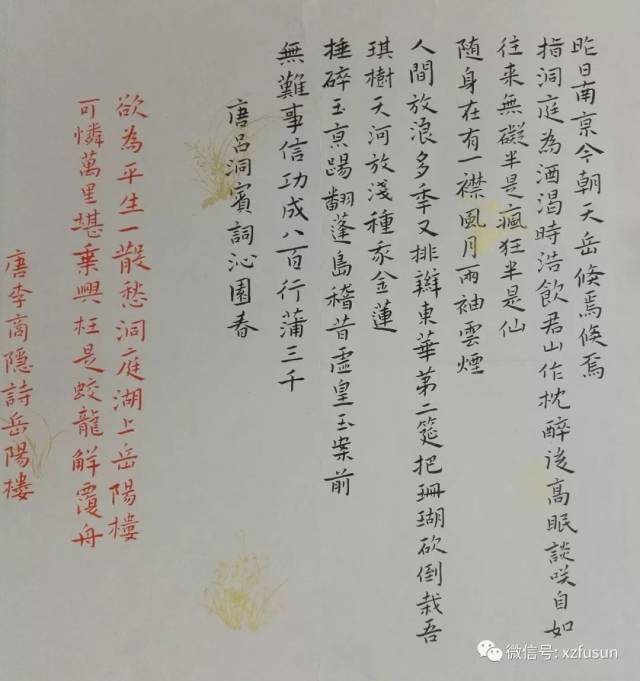 昨日南京今朝天岳倏焉倏焉
指洞庭為酒渴時浩飲君山作枕醉後高眠談咲自如
往來無礙半是瘋狂半是仙
隨身在有一襟風月兩袖雲煙
人間放浪多季又排辦東華第二筵把珊瑚砍倒栽吾
琪樹天河放淺種我金蓮
捶碎玉京踢翻蓬島稽首虛皇玉案前
無難事信功成八百行蒲三千
唐呂洞賓詞沁園春
欲為平生一散愁洞庭湖上岳陽樓
可憐萬里堪乗興枉是蛟龍解覆舟
唐李商隱詩岳陽樓
微信号: xzfusun